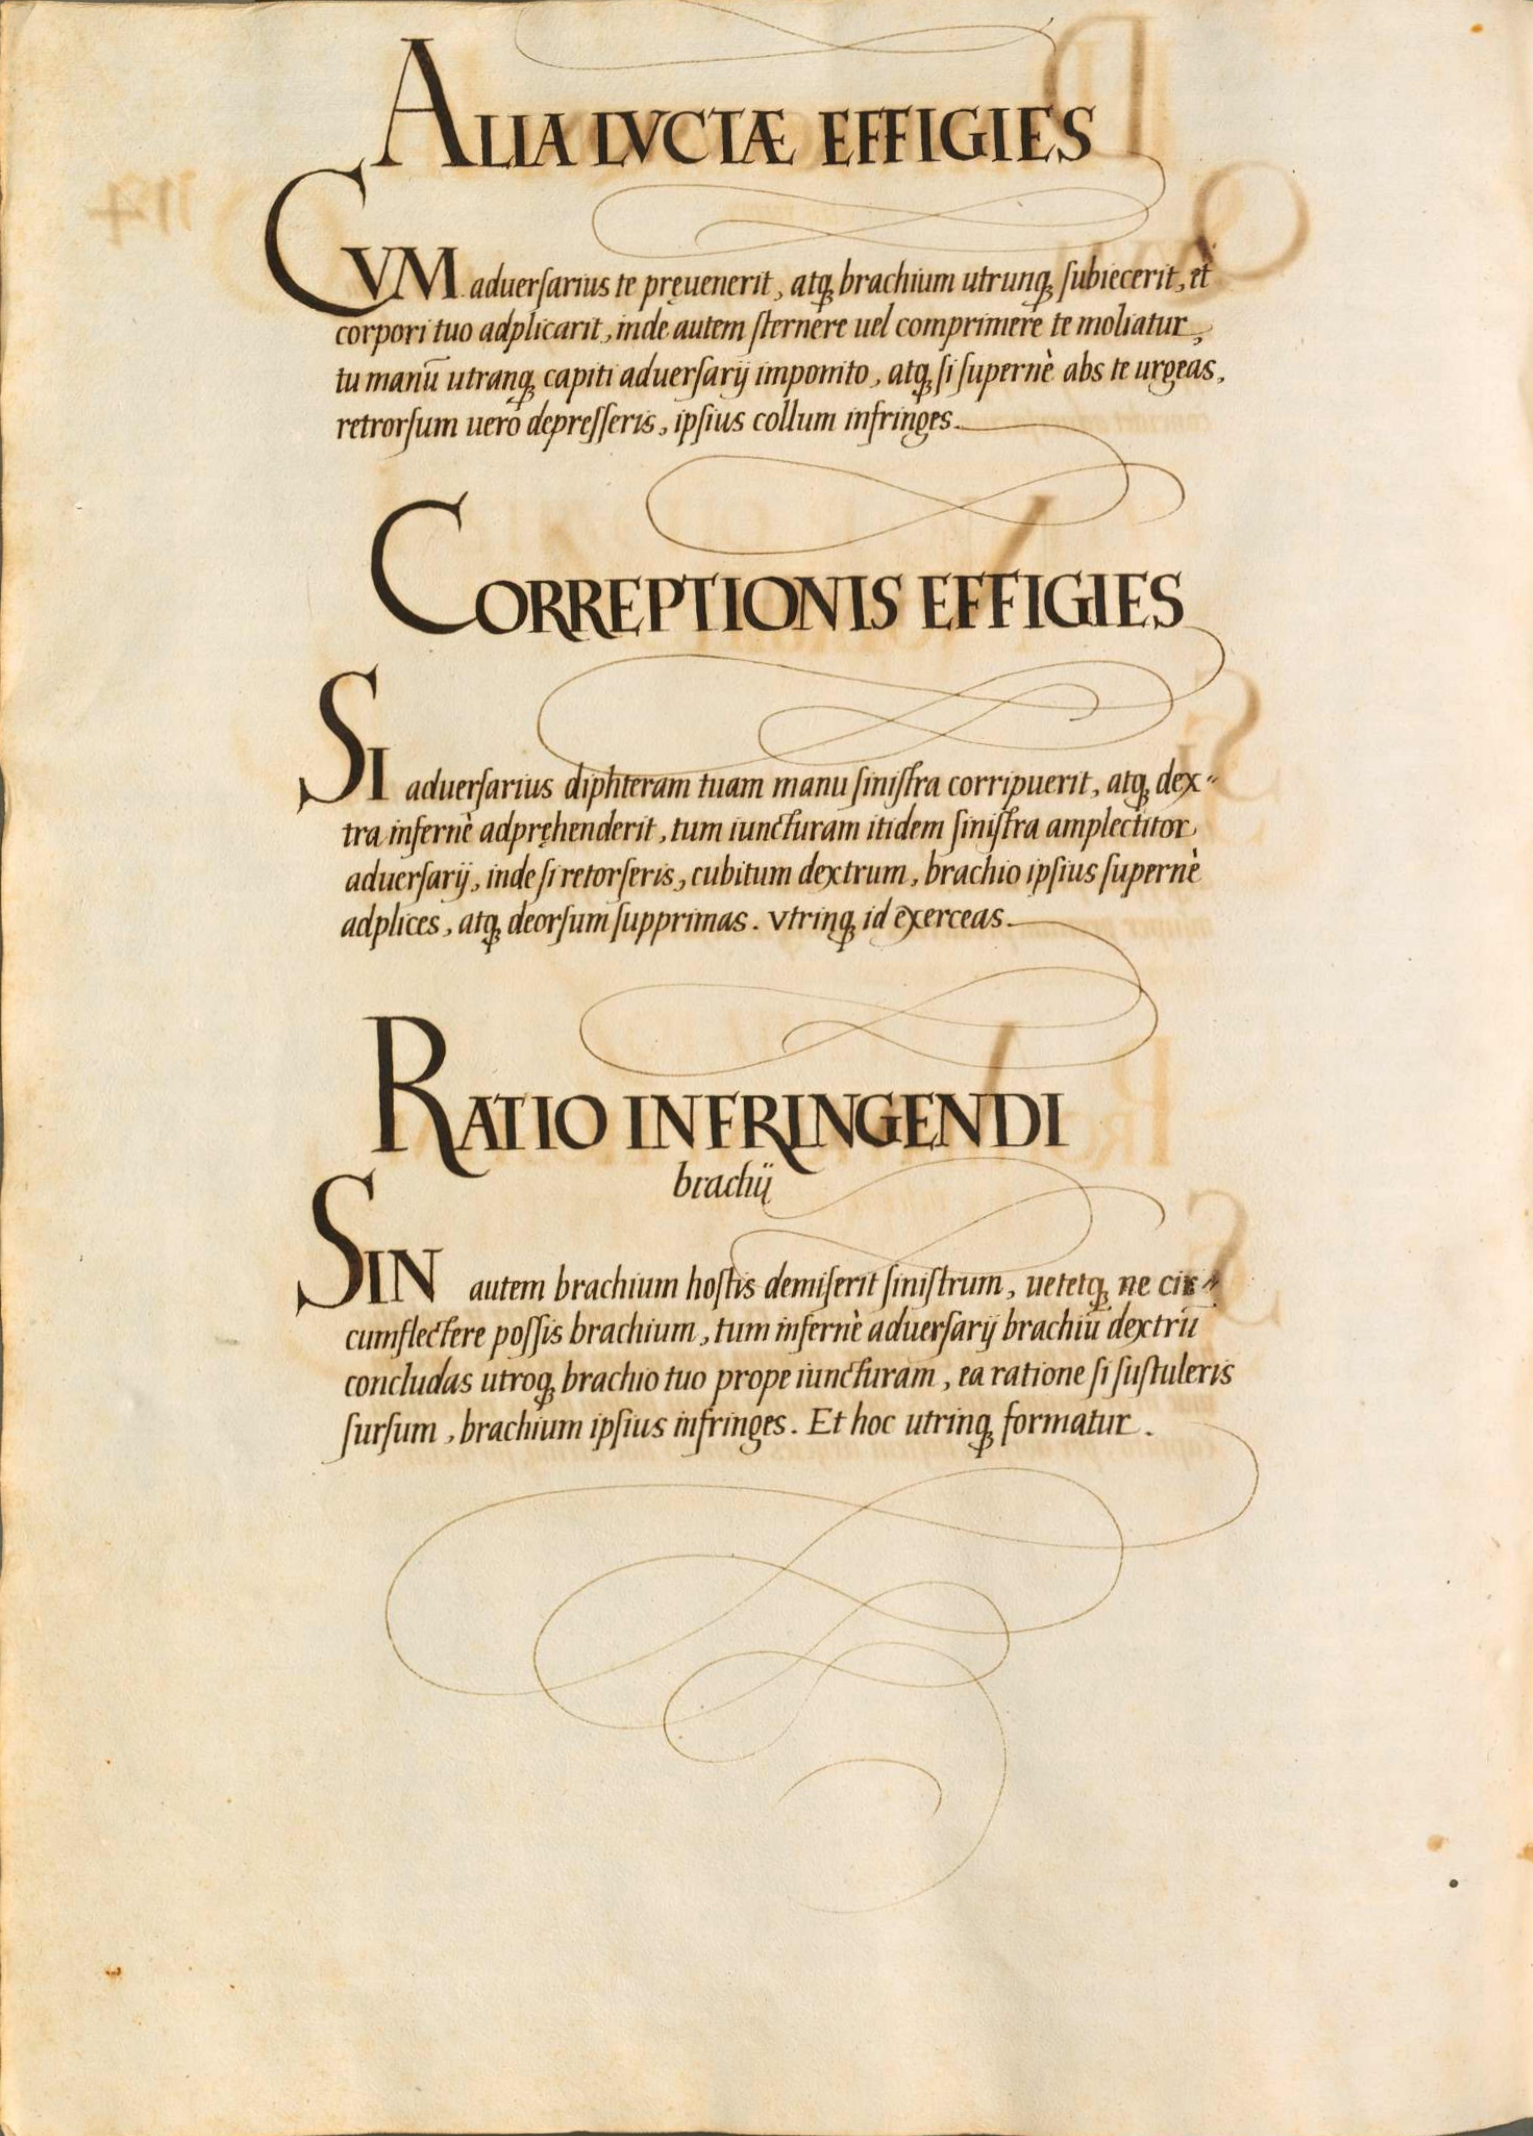 ALIA LVCTÆ EFFIGIES
CVM aduerſarius te pręuenerit, atqꝫ brachium utrunqꝫ ſubiecerit, et
corpori tuo adplicarit, inde autem ſternere uel comprimere te moliatur,
tu manū utranqꝫ capiti aduerſarij imponito, atqꝫ ſi ſupernè abs te urgeas,
retrorſum uerò depreſſeris, ipſius collum infringes.
CORREPTIONIS EFFIGIES
SI aduerſarius diphteram tuam manu ſiniſtra corripuerit, atqꝫ dex-
tra infernè adpręhenderit, tum iuncturam itidem ſiniſtra amplectitor
aduerſarij, inde ſi retorſeris, cubitum dextrum, brachio ipſius ſupernè
adplices, atqꝫ deorſum ſupprimas. Vtrinqꝫ id exerceas.
RATIO INFRINGENDI
brachij
SIN autem brachium hoſtis demiſerit ſiniſtrum, uetetqꝫ ne cir-
cumflectere poſſis brachium, tum infernè aduerſarij brachiū dextrū
concludas utroqꝫ brachio tuo prope iuncturam, ea ratione ſi ſuſtuleris
ſurſum, brachium ipſius infringes. Et hoc utrinqꝫ formatur.